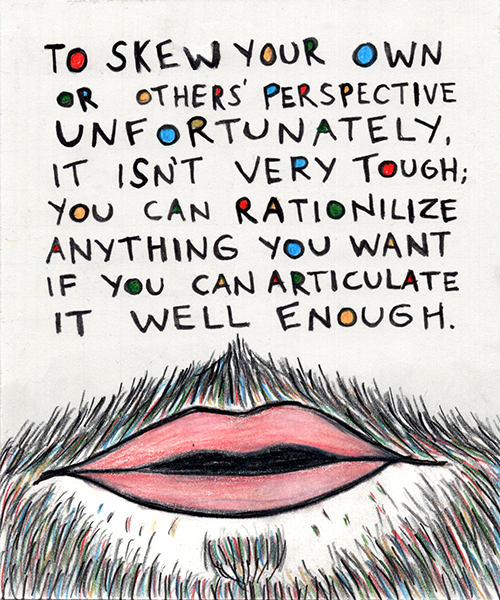 TO SKEW YOUR OWN
OR OTHERS' PERSPECTIVE
UNFORTUNATELY,
IT ISN'T VERY TOUGH;
YOU CAN RATIONILIZE
ANYTHING YOU WANT
IF YOU CAN ARTICULATE
IT WELL ENOUGH.